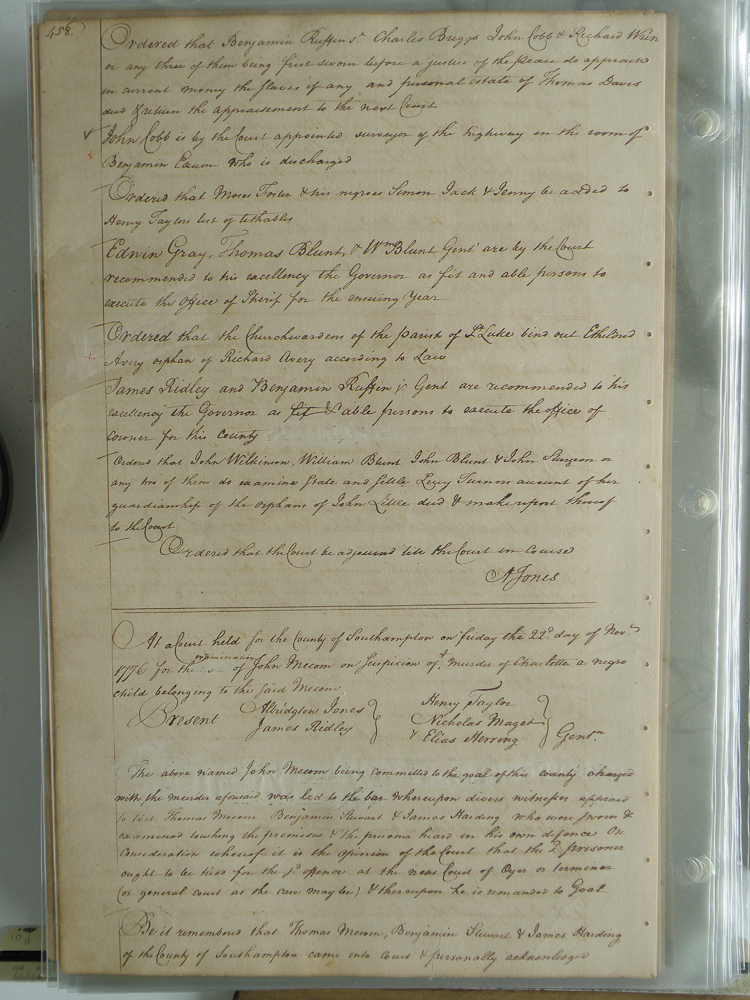 458.
Ordered that Benjamin Ruffin Sr. Charles Briggs John Cobb & Richard
or any three of them being first sworn before a Justice of the Peace do appraise
in current money the slaves if any and personal estate of Thomas Davis
decd & return the appraisement to the next Court
John Cobb is by the Court appointed surveyor of the highway in the room of
Benjamin Exum who is discharged
Ordered that Moses Foster & his negroes Simon Jack & Jenny be added to
Henry Taylors list of tithables
Edwin Gray, Thomas Blunt, & Wm Blunt Gent are by the Court
recommended to his excellency the Governor as fit and able persons to
execute the office of Sherif for the ensuing Year
Ordered that the Churchwardens of the parish of St Luke bind out Etheldred
Avery orphan of Richard Avery according to Law
James Ridley and Benjamin Ruffin jr Gent are recommended to his
excellency the Governor as fit & able persons to execute the office of
coroner for this County
Ordered that John Wilkinson, William Blunt John Blunt & John Sturgeon or
any two of them do examine state and settle Turners account of her
guardianship of the orphans of John Little decd & make report thereof
to the Court
Ordered that the Court be adjourned till the Court in Course
A Jones
At a Court held for the County of Southampton on friday the 22d day of Novr
1776 for the examination of John Mecom on suspicion of ye murder of Charlotte a negro
child belonging to the said Mecom
Present Albridgton Jones Henry Taylor
James Ridley Nicholas Maget
& Elias Herring Gentn
The above named John Mecom being committed to the goal of this county charged
with the murder aforesaid was led to the bar whereupon divers witnesses appeared
to wit Thomas Mecom Benjamin Stewart & James Harding who were sworn &
examined touching the premises & the prisoner heard in his own defence On
Consideration whereof it is the opinion of the Court that the prisoner
ought to be tried for the sd offence at the next Court of Oyer & terminer
(or general court as the case may be) & thereupon he is remanded to Goal
Be it remembered that Thomas Mecom, Benjamin Stewart & James Harding
of the County of Southampton came into Court & personally acknowledged